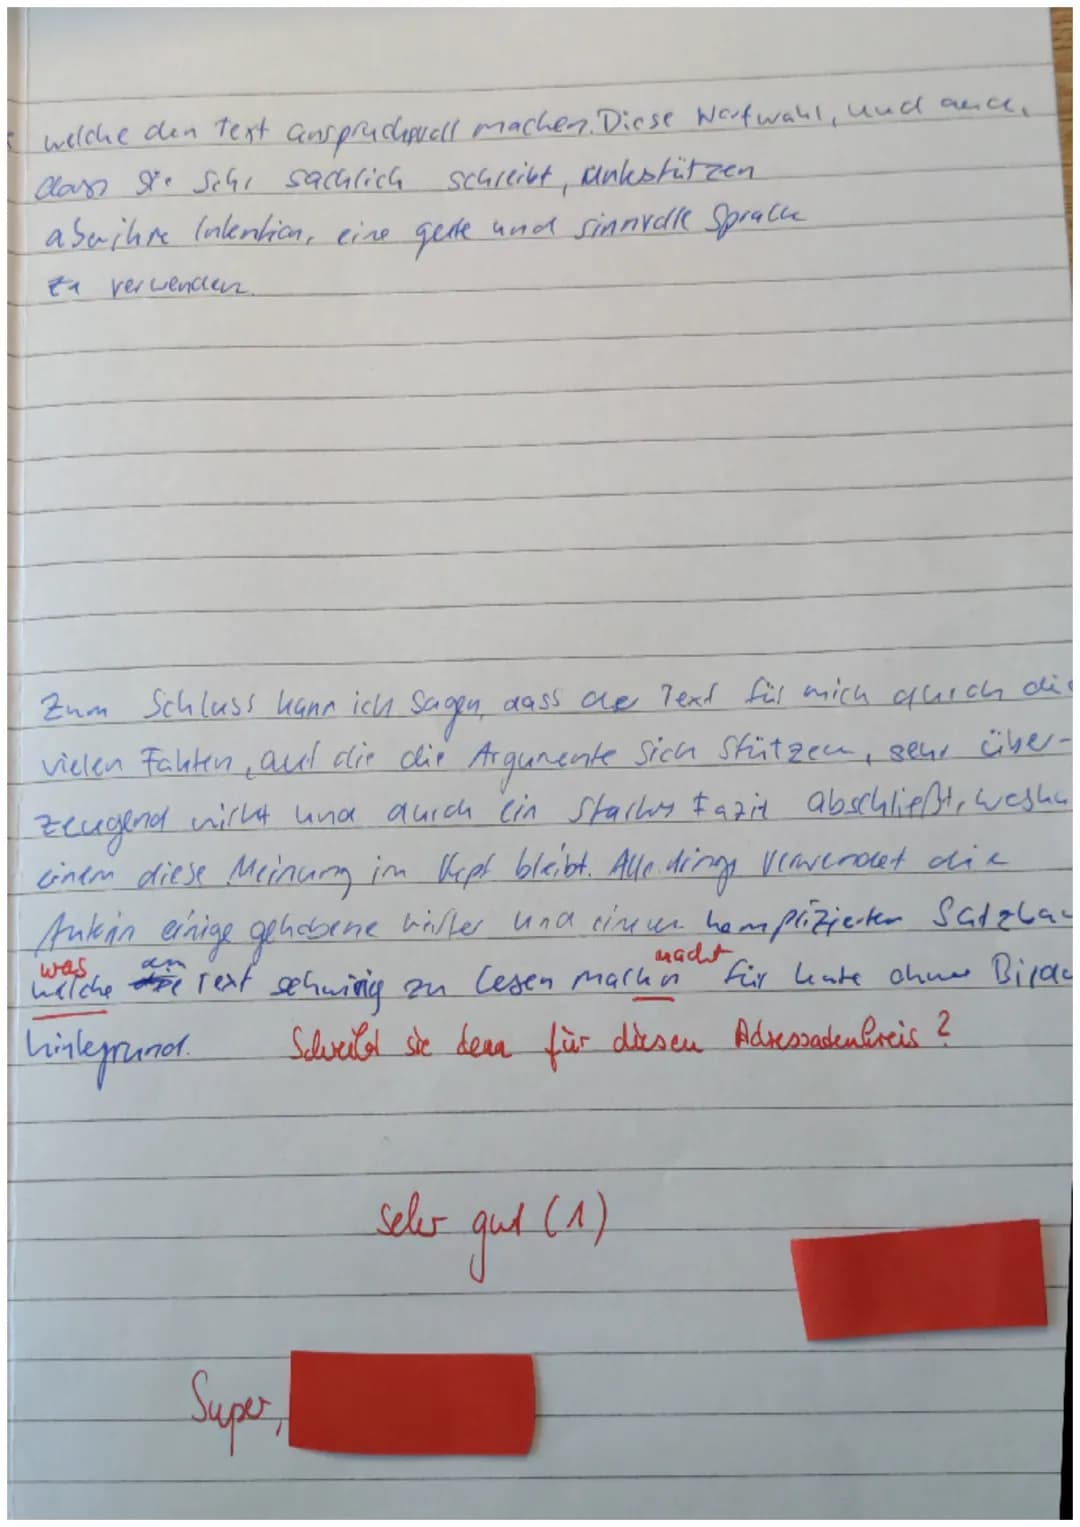 welche den Text anspruchsvoll machen. Diese Wortwahl, und auch,
dass sie sehr sachlich schreibt, unterstützen
aber ihre Intention, eine gute und sinnvolle Sprache
zu verwenden.
Zum Schluss kann ich sagen, dass der Text für mich durch die
vielen Fakten, auf die die Argumente sich stützen, sehr über-
zeugend wirkt und durch ein starkes Fazit abschließt, wesha
einem diese Meinung im Kopf bleibt. Allerdings verwendet die
Autorin einige gehobene Wörter und einen komplizierten Satzbau
was den macht
welche Text schwierig zu lesen machen für Leute ohne Bildu
hintergrund. Schreibt sie denn für diesen Adressatenkreis?
sehr gut (1)
Super,